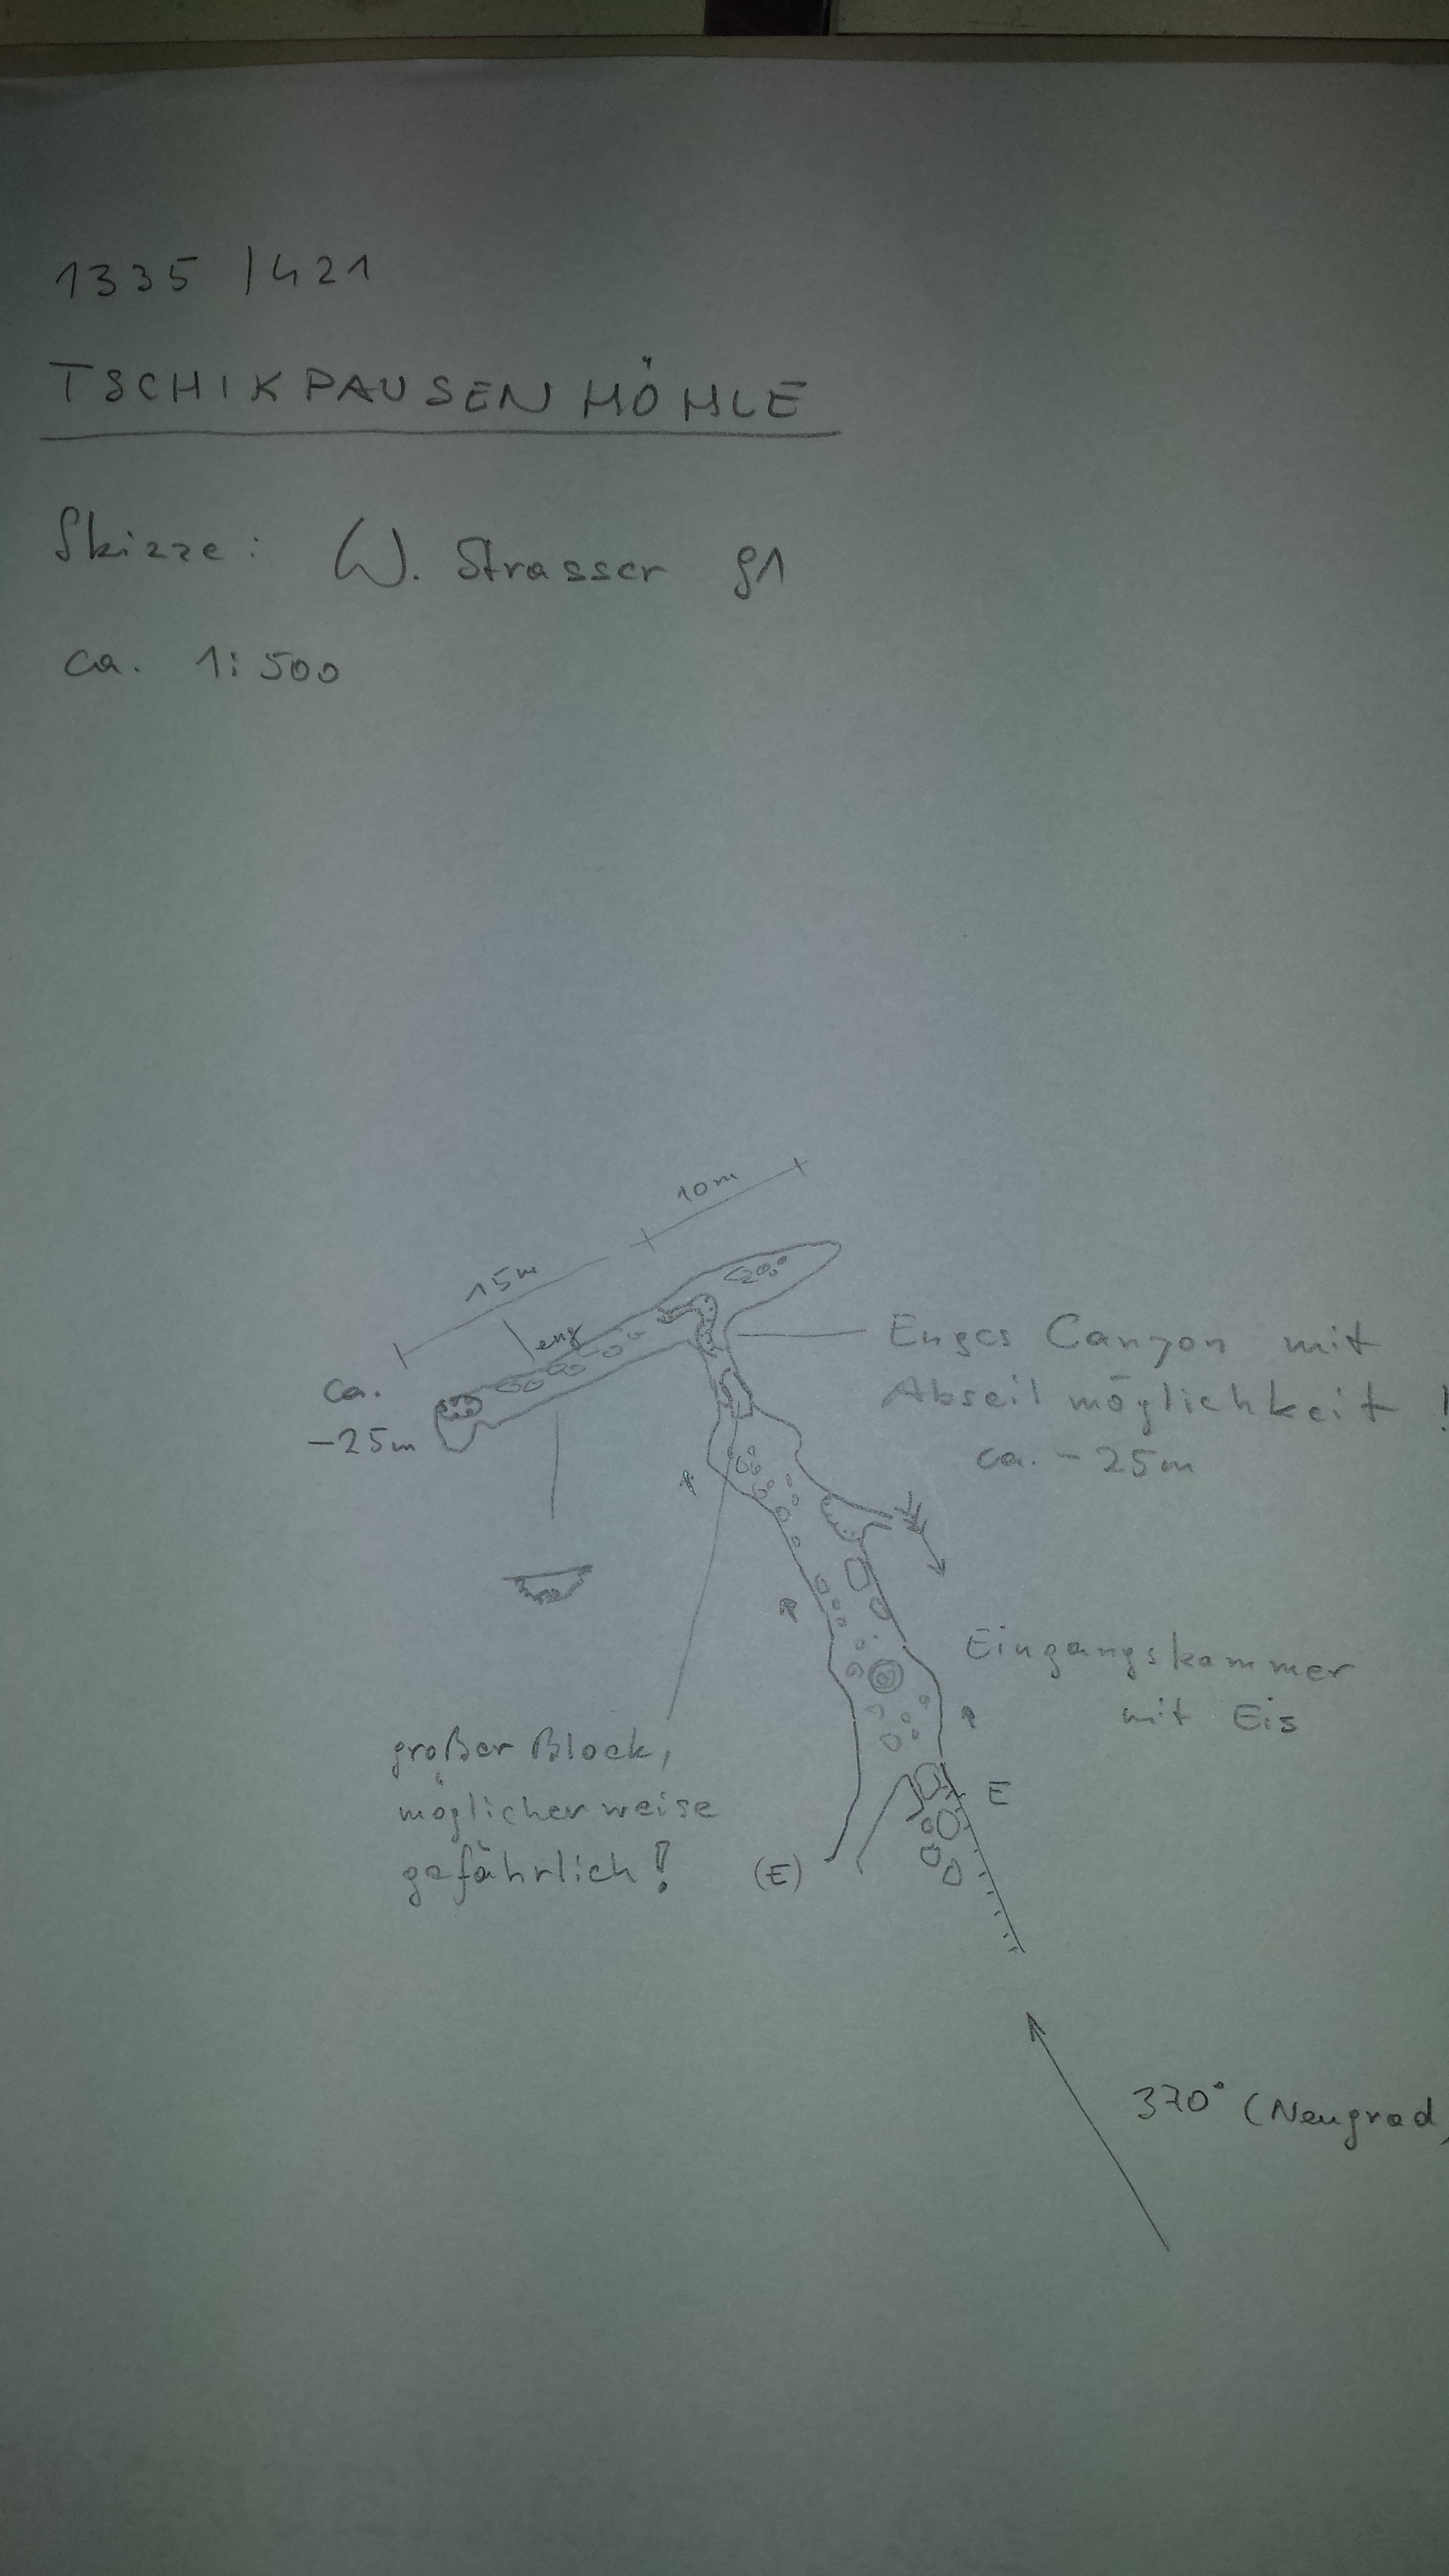 1335 / 421
TSCHIKPAUSENHÖHLE
Skizze: W. Strasser 91
ca. 1:500
10m
15m
eng
ca.
-25m
Enges Canyon mit
Abseilmöglichkeit!
ca. -25m
Eingangskammer
mit Eis
großer Block,
möglicherweise
gefährlich!
E
(E)
370° (Neugrad)